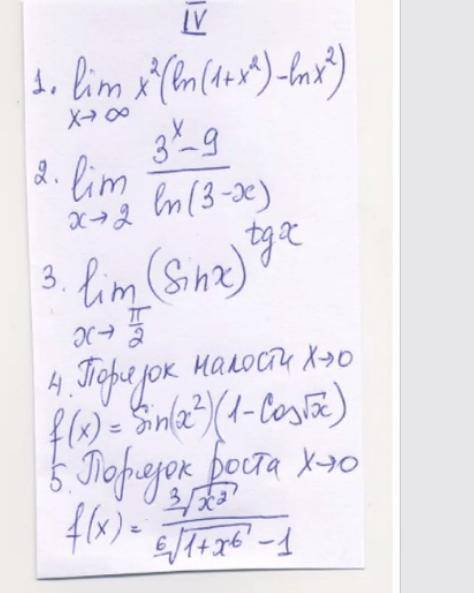 IV
1. lim x→∞ x²(ln(1+x²)-lnx²)
2. lim x→2 (3ˣ-9)/(ln(3-x))
3. lim x→π/2 (Sinx)^tgx
4. Порядок малости x→0
f(x) = Sin(x²)(1-Cos√x)
5. Порядок роста x→0
f(x) = ∛(x²)/(⁶√(1+x⁶) -1)